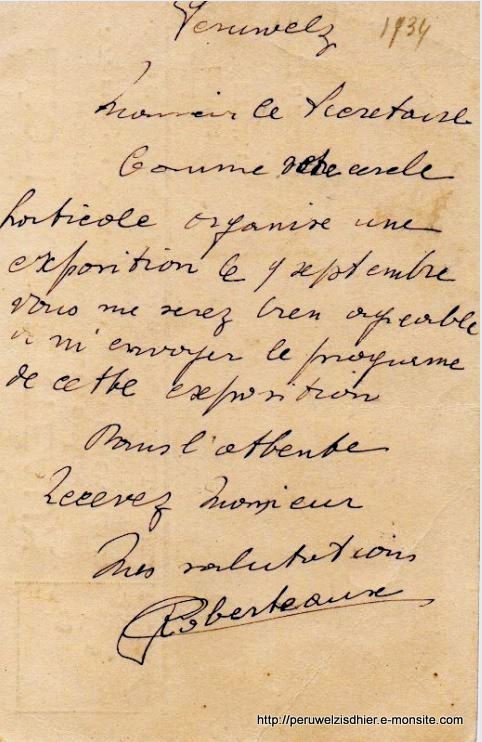 Peruwelz 1934
Monsieur le Secretaire
Comme votre cercle
horticole organise une
exposition le 9 septembre
vous me serez bien agreable
a m'envoyer le programme
de cette exposition
Dans l'attente
Recevez Monsieur
Mes salutations
Roberteaux
http://peruwelzisdhier.e-monsite.com